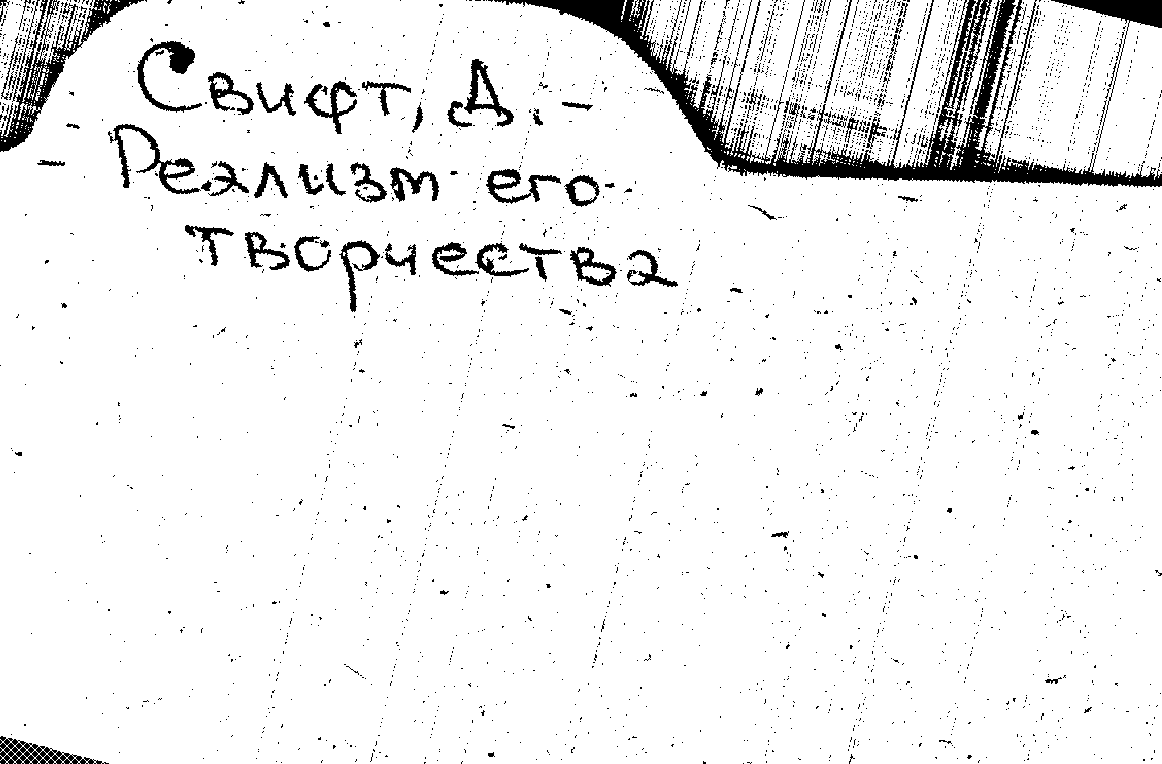 Свифт, Д. -
- Реализм его
творчества